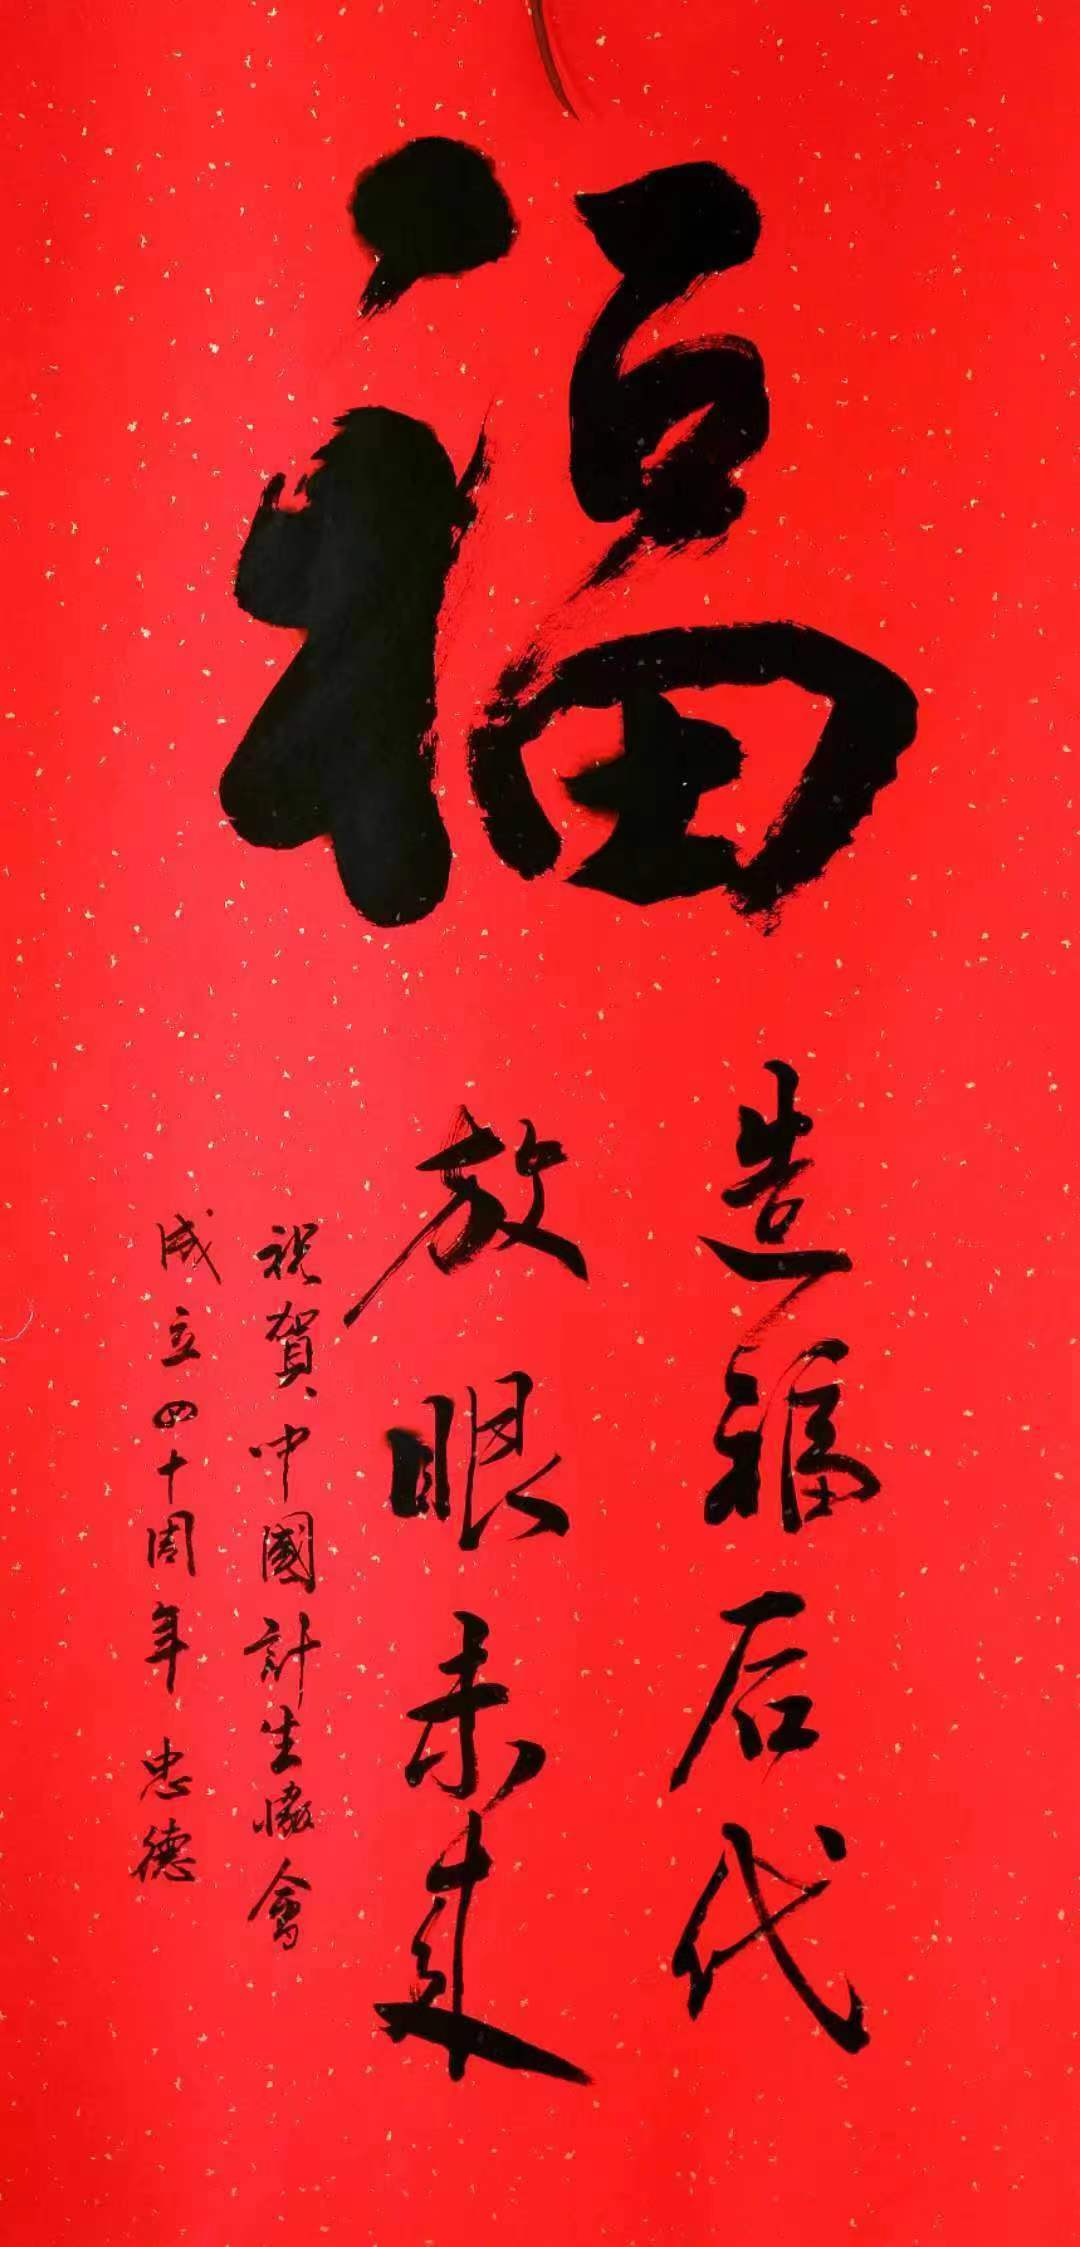 福
造福后代
放眼未来
祝賀中國計生協會
成立四十周年 忠德